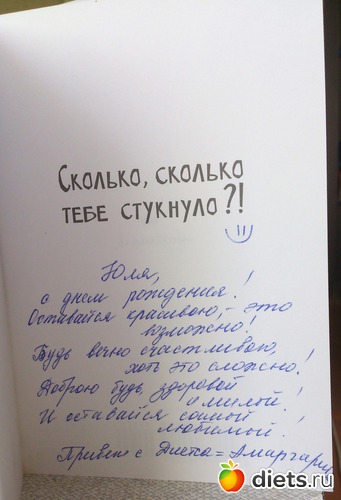 Сколько, сколько
тебе стукнуло?!
Юля,
с днём рождения!
Оставайся красивою, - это
возможно!
Будь вечно счастливою,
хоть это сложно!
Доброю будь, здоровой
и милой!
И оставайся самой
любимой!
Привет с Диета =
diets.ru